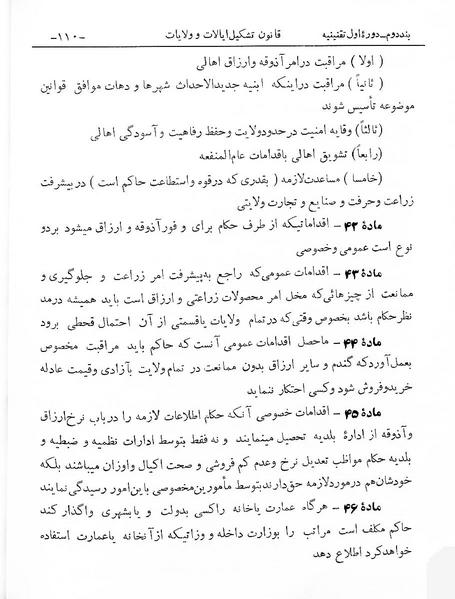 بنددوم_دورهٔ اول تقنینیه قانون تشکیل ایالات و ولایات -۱۱۰-
( اولا ) مراقبت درامر آذوقه وارزاق اهالی
( ثانیاً ) مراقبت دراینکه ابنیه جدیدالاحداث شهرها و دهات موافق قوانین
موضوعه تأسیس شوند
(ثالثاً) وقایه امنیت در حدود ولایت وحفظ رفاهیت و آسودگی اهالی
(رابعاً) تشویق اهالی باقدامات عام‌المنفعه
(خامسا ) مساعدت‌لازمه ( بقدری که درقوه واستطاعت حاکم است ) درپیشرفت
زراعت وحرفت و صنایع و تجارت ولایتی
مادهٔ ۴۲ – اقداماتیکه از طرف حکام برای و فور آذوقه و ارزاق میشود بردو
نوع است عمومی وخصوصی
مادهٔ ۴۳ – اقدامات عمومی‌که راجع به‌پیشرفت امر زراعت و جلوگیری و
ممانعت از چیزهائی‌که مخل امر محصولات زراعتی و ارزاق است باید همیشه درمد
نظرحاکم باشد بخصوص وقتی‌که درتمام ولایات یاقسمتی از آن احتمال قحطی برود
مادهٔ ۴۴ – ماحصل اقدامات عمومی آنست که حاکم باید مراقبت مخصوص
بعمل‌آوردکه گندم و سایر ارزاق بدون ممانعت در تمام ولایت بآزادی وقیمت عادله
خریدوفروش شود وکسی احتکار ننماید
مادهٔ ۴۵ – اقدامات خصوصی آنکه حکام اطلاعات لازمه را درباب نرخ‌ارزاق
وآذوقه از ادارهٔ بلدیه تحصیل مینمایند و نه فقط بتوسط ادارات نظمیه و ضبطیه و
بلدیه حکام مواظب تعدیل نرخ وعدم کم فروشی و صحت اکیال واوزان میباشند بلکه
خودشان‌هم درموردلازمه حق‌دارندبتوسط مأمورین‌مخصوصی باین‌امور رسیدگی‌نمایند
مادهٔ ۴۶ – هرگاه عمارت یاخانه راکسی بدولت و یابشهری واگذار کند
حاکم مکلف است مراتب را بوزارت داخله و وزاتیکه ازآنخانه یاعمارت استفاده
خواهدکرد اطلاع دهد